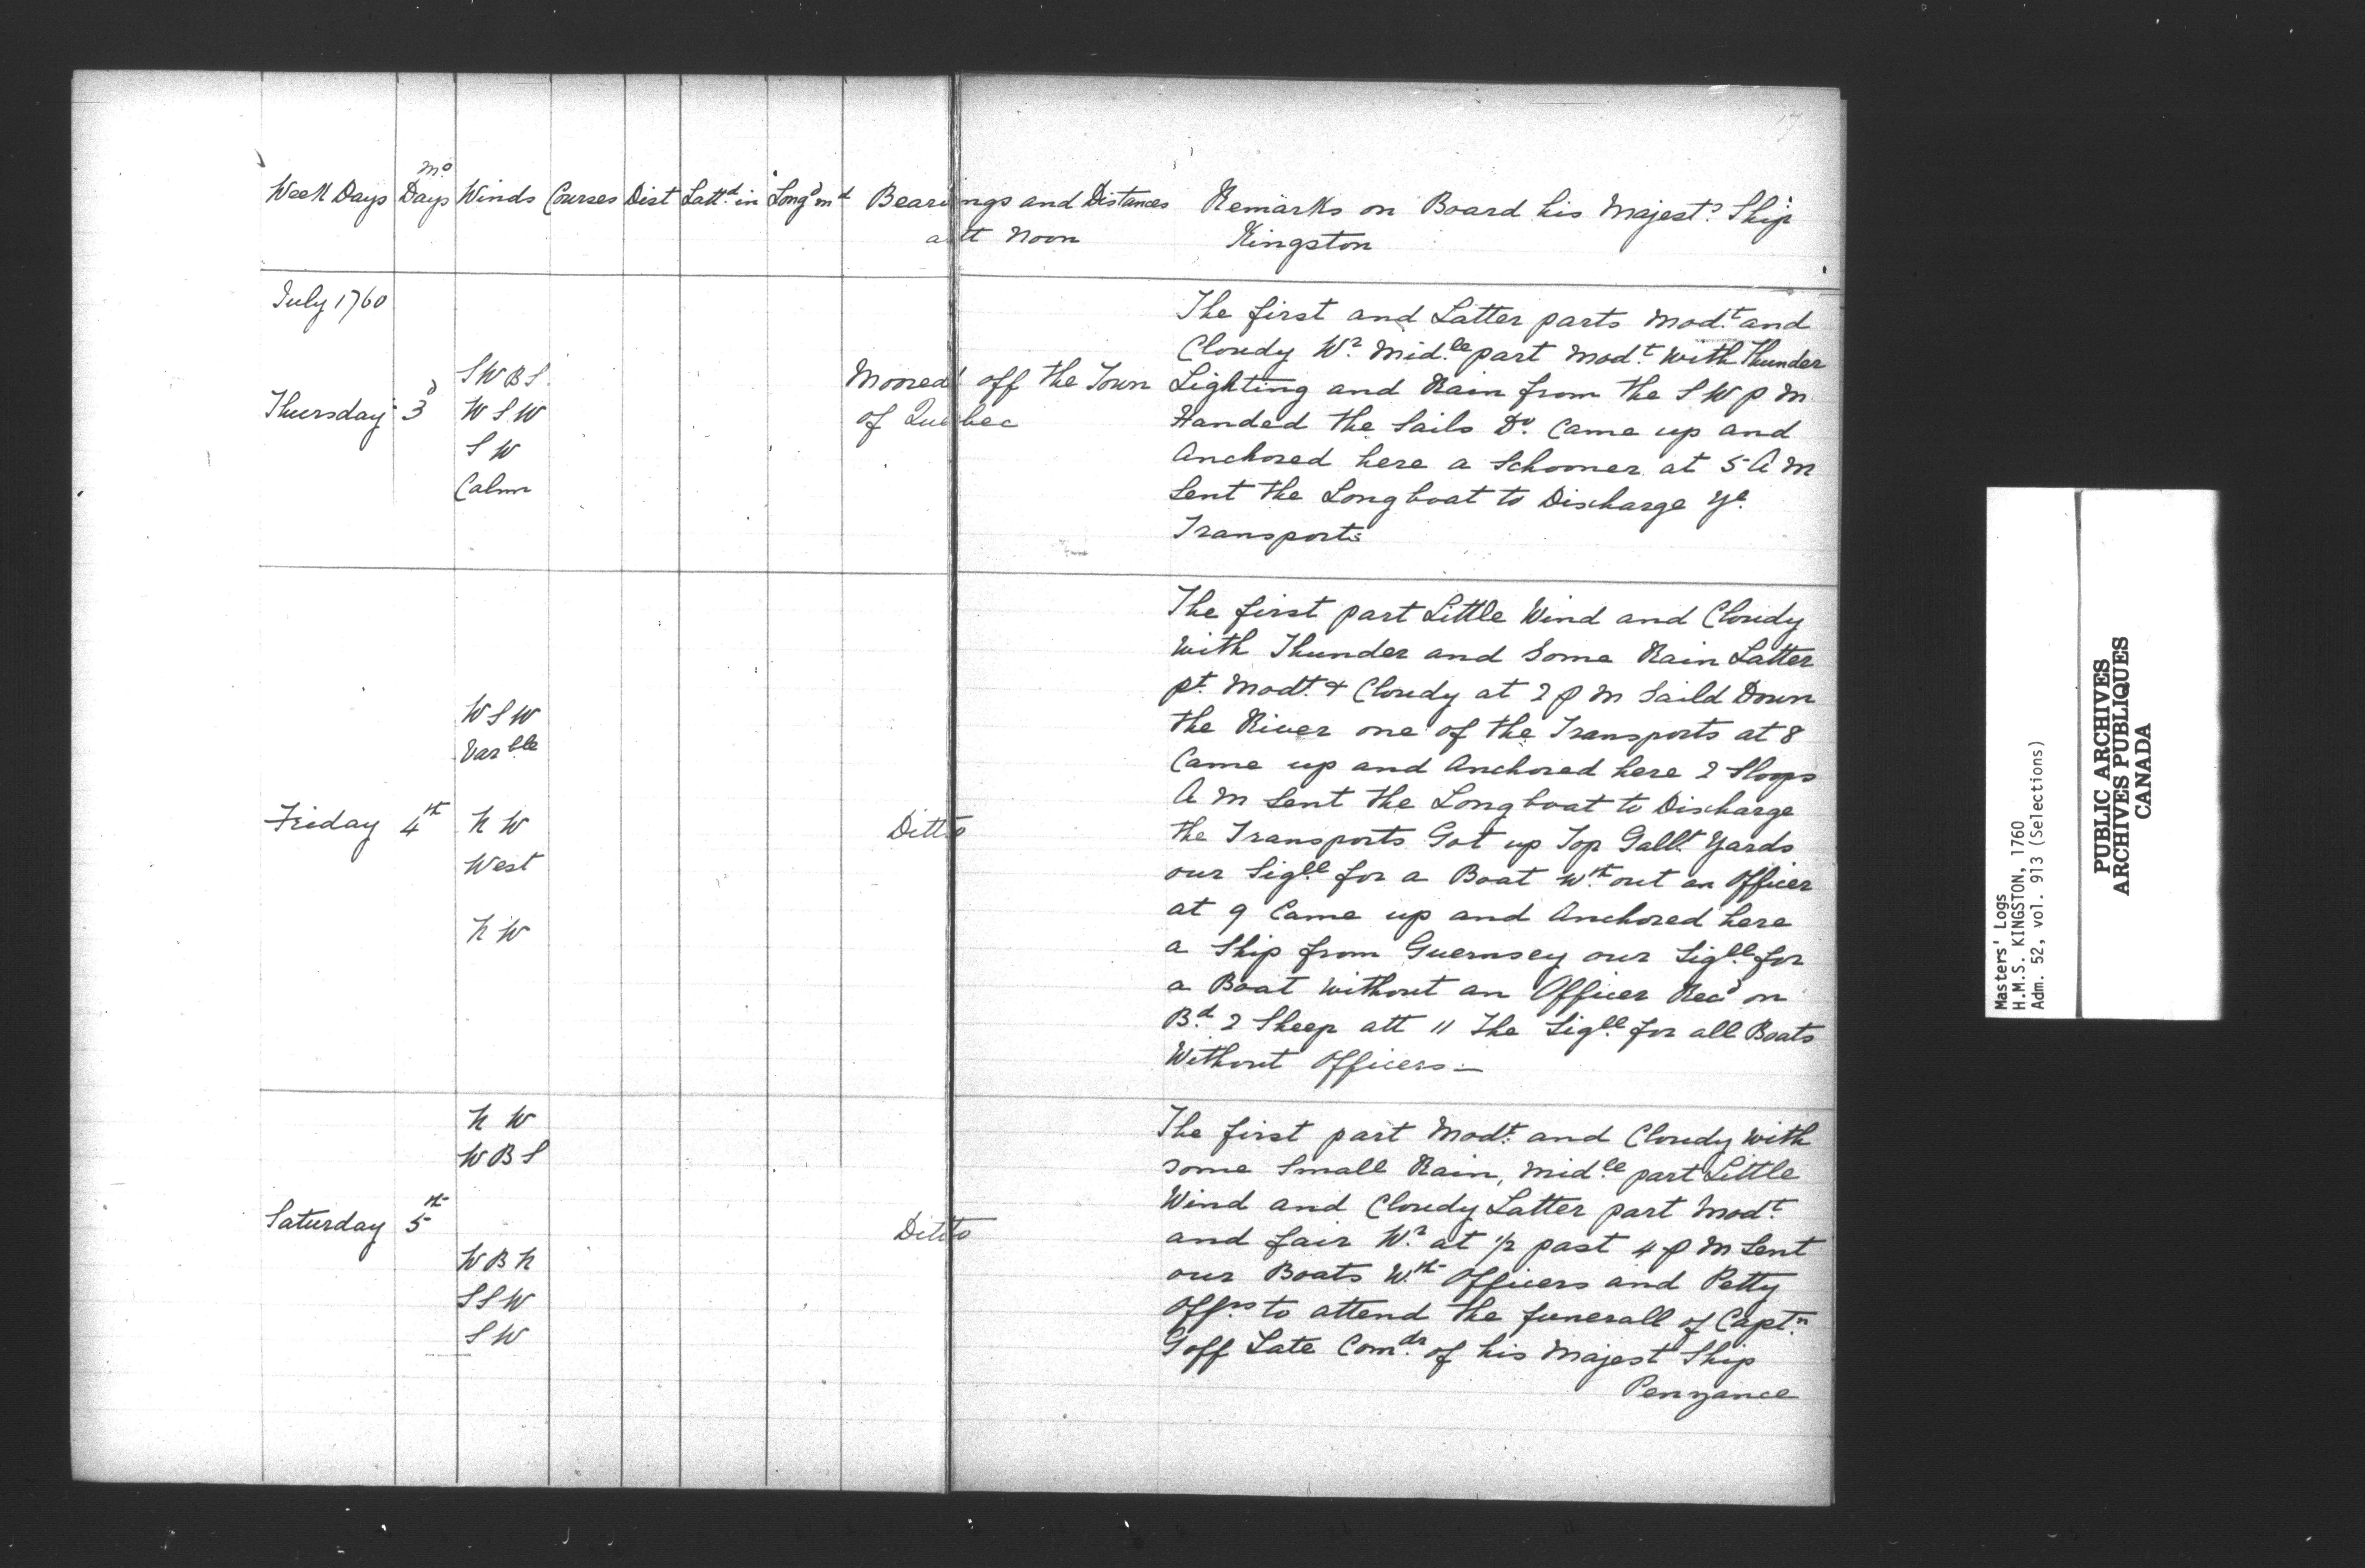 17
Week Days mo Days Winds Courses Dist Lattd in Longd in d Bearings and Distances att Noon
Remarks on Board his Majests Ship
Kingston
July 1760
Thursday 3d
SWBS
WSW
SW
Calm
Moored off the Town
of Quebec
The first and Latter parts Modt and
Cloudy Wr Midle part Modt with Thunder
Lighting and Rain from the SW P M
Handed the Sails Do Came up and
Anchored here a Schooner at 5 A M
Sent the Longboat to Discharge ye
Transports
Friday 4th
WSW
Varble
NW
West
NW
Ditto
The first part Little Wind and Cloudy
with Thunder and Some Rain Latter
pt Modt & Cloudy at 2 P M Saild Down
the River one of the Transports at 8
Came up and Anchored here 2 Sloops
A M Sent the Longboat to Discharge
the Transports Got up Top Gallt Yards
our Sigll for a Boat wthout an Officer
at 9 Came up and Anchored here
a Ship from Guernsey our Sigll for
a Boat without an Officer Recd on
Bd 2 Sheep att 11 The Sigll for all Boats
Without Officers —
Saturday 5th
NW
WBS
WBN
SSW
SW
Ditto
The first part Modt and Cloudy with
some Small Rain, Midle part Little
Wind and Cloudy Latter part Modt
and fair Wr at 1/2 past 4 P M Sent
our Boats Wth Officers and Petty
Offrs to attend the funerall of Captn
Goff Late Comdr of his Majest Ship
Penzance
Masters' Logs
H.M.S. KINGSTON, 1760
Adm. 52, vol. 913 (Selections)
PUBLIC ARCHIVES
ARCHIVES PUBLIQUES
CANADA